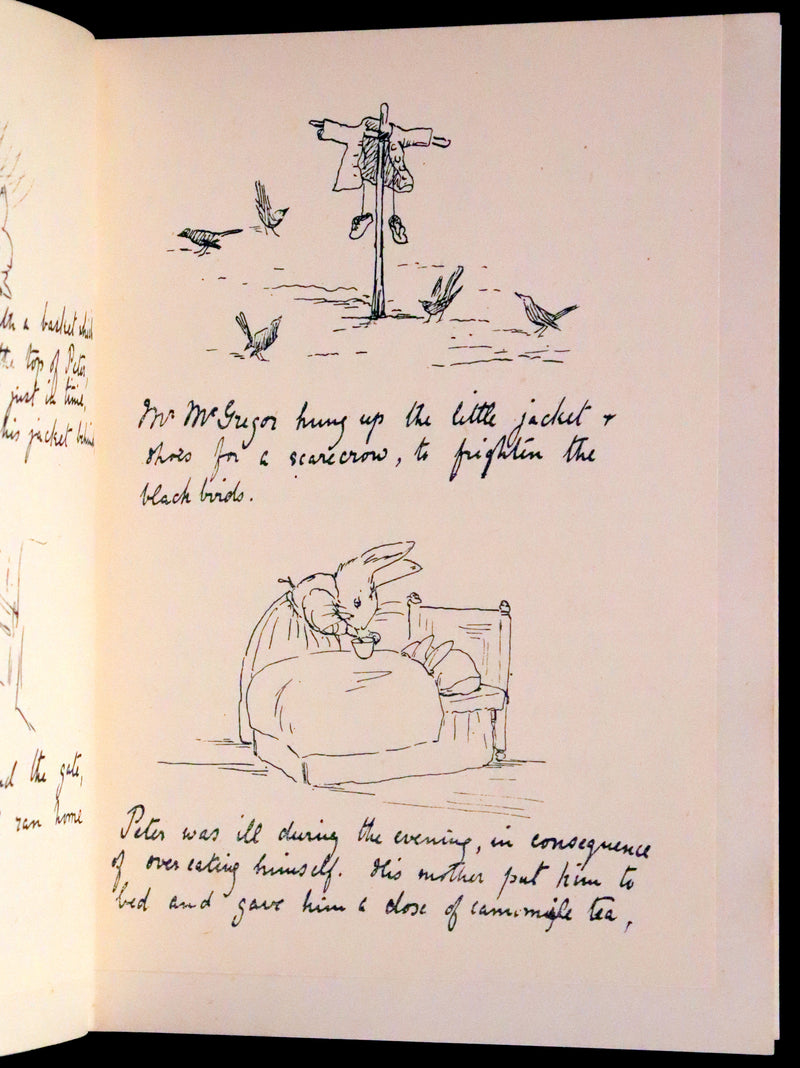 th a basket which
the top of Peter,
just in time,
his jacket behind
nd the gate,
ran home
Mr McGregor hung up the little jacket +
shoes for a scarecrow, to frighten the
black birds.
Peter was ill during the evening, in consequence
of over eating himself. His mother put him to
bed and gave him a dose of camomile tea,